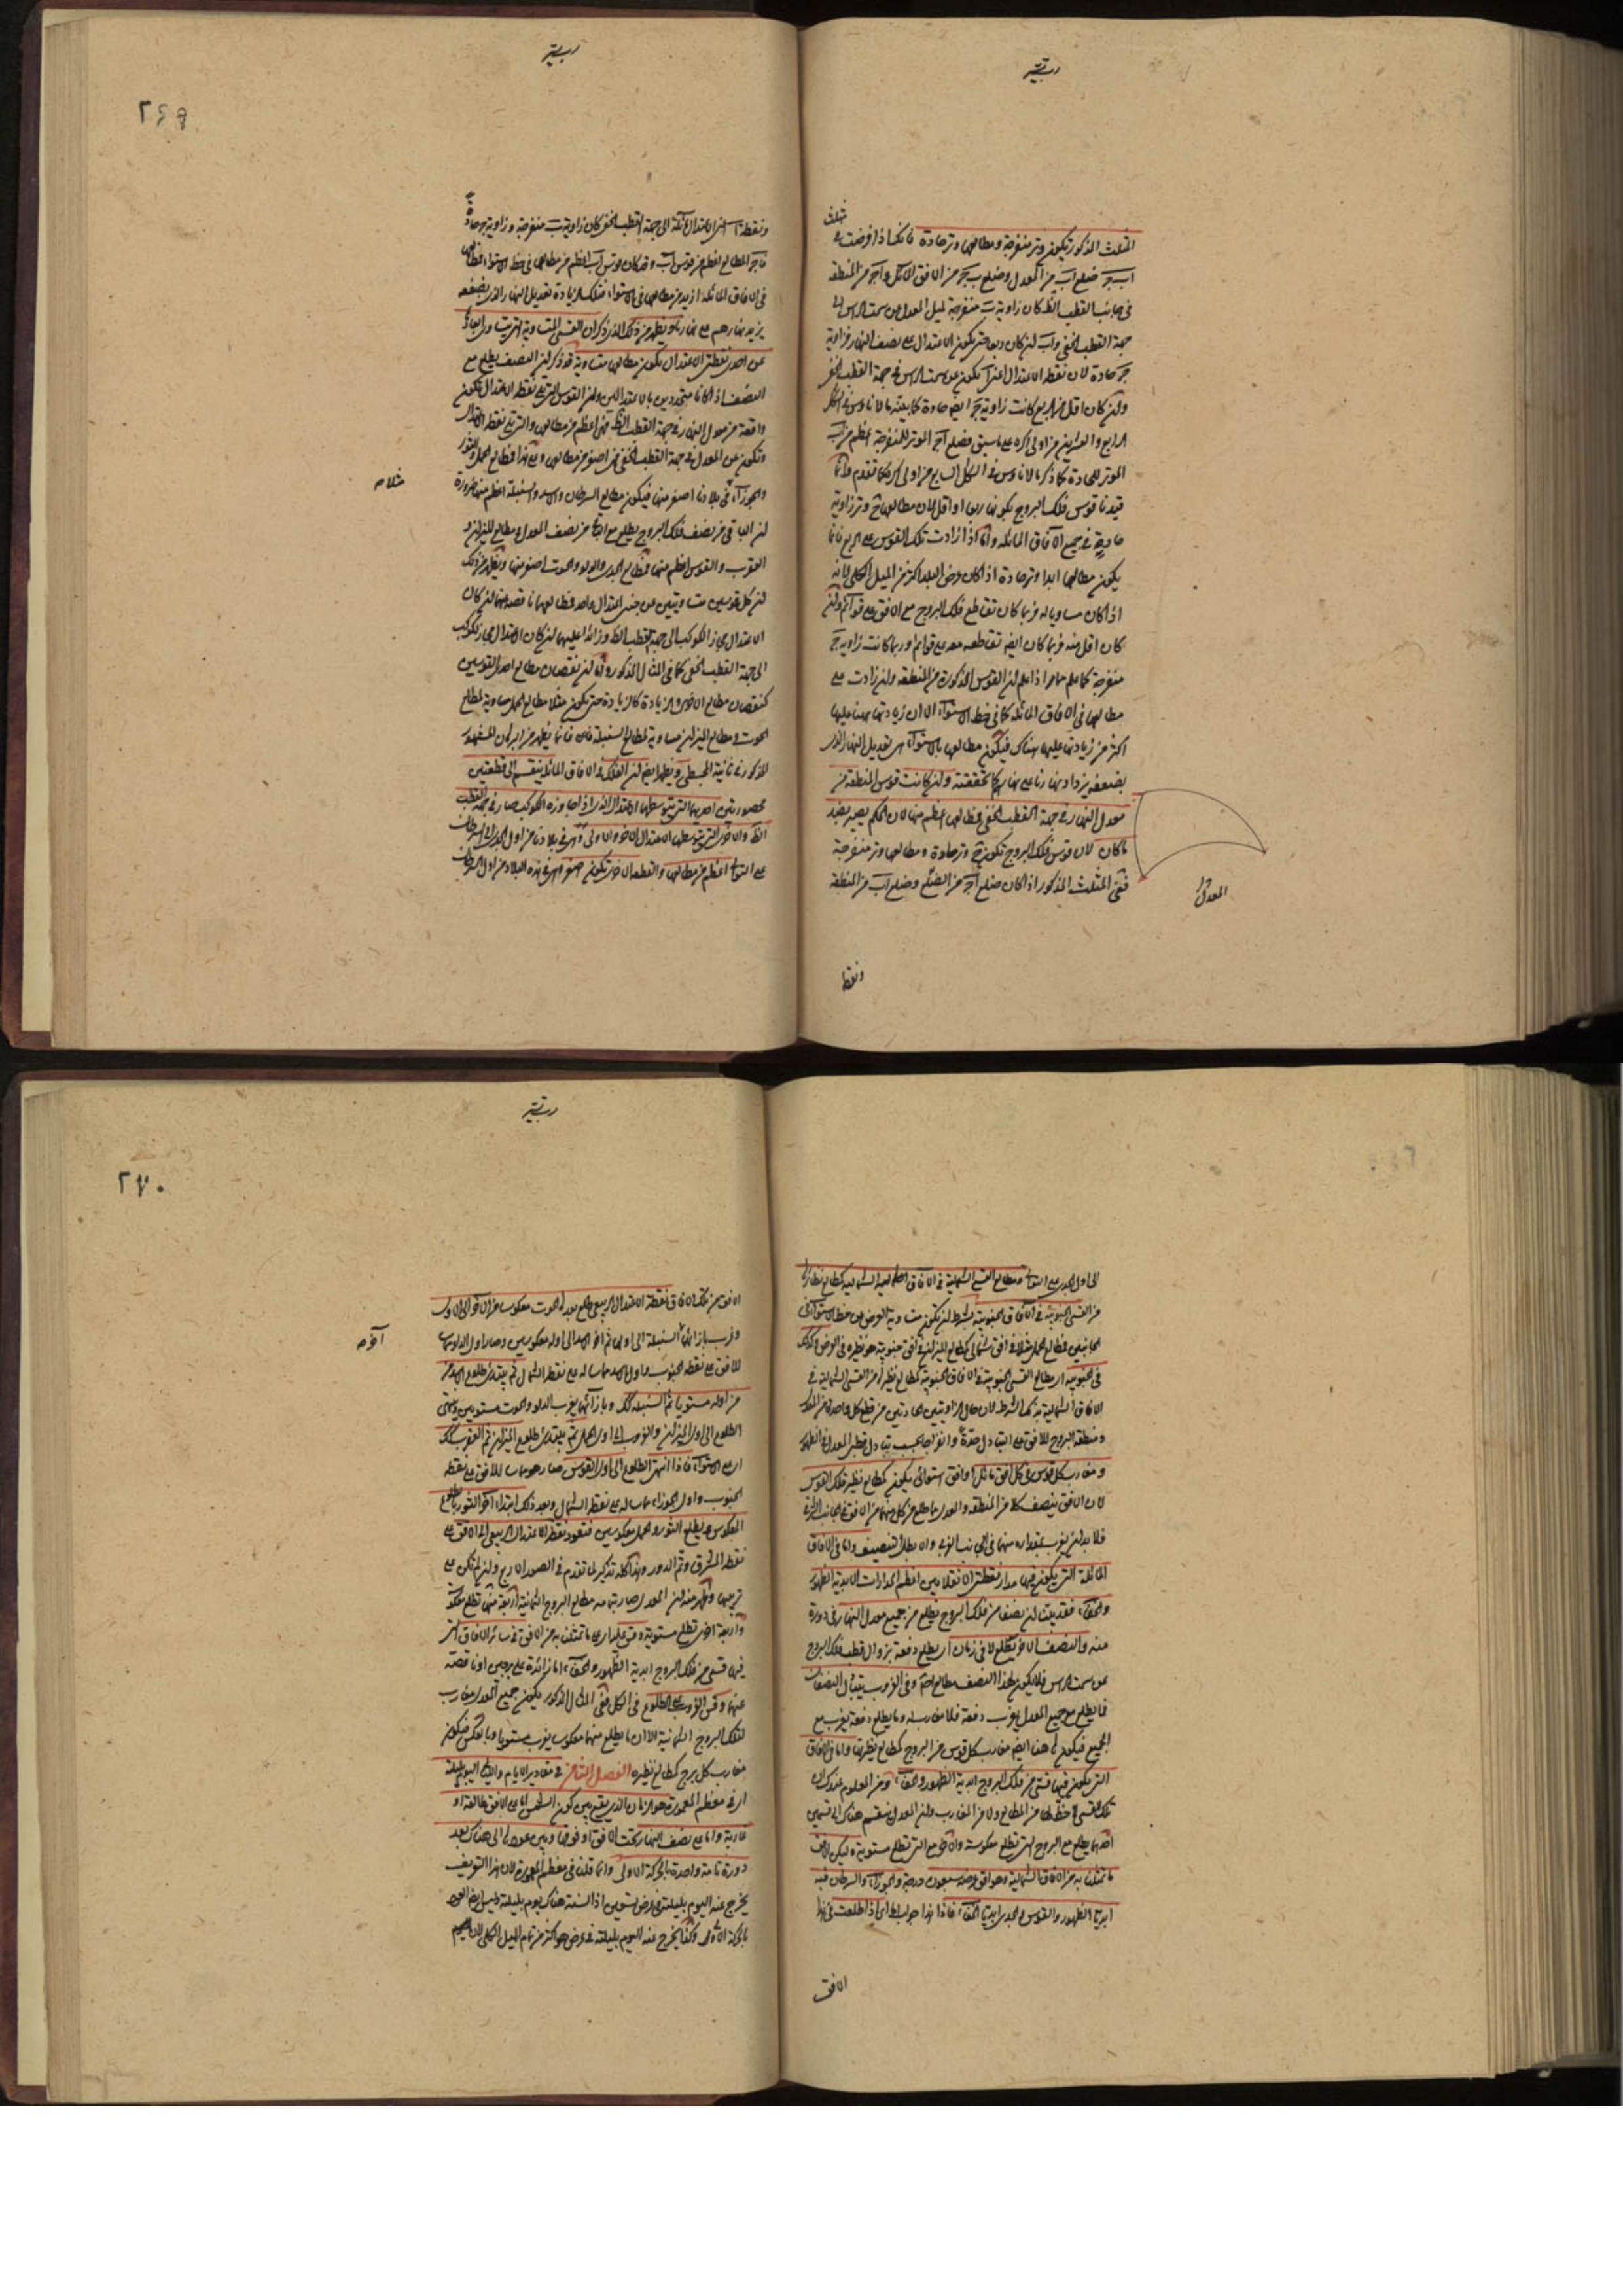 المثلث المذكور تكون وتر منفرجة ومطالعها وتر حادة فانك اذا فرضت في مثلث
اب ج ضلع اب من المعدل وضلع ب ج من الافق المائل و اج من المنطقة
في جانب القطب الظ كان زاوية ب منفرجة لميل المعدل عن سمت الراس الى
جهة القطب الخفي و اب لما كان ربعا حتى يكون الاعتدال على نصف النهار وزاوية
ج حادة لان نقطة الاعتدال اعني آ تكون عن سمت الراس في جهة القطب الخفي
وان كان اقل من الربع كانت زاوية ج ايضا حادة كما بينه مالاناوس في الشكل
الرابع والعشرين من اولى اكره على ما سبق فضلع اج الموتر للمنفرجة اعظم من اب
الموتر للحادة كما ذكر مالاناوس في الشكل السابع من اولى اكره كما تقدم وانما
قيدنا قوس فلك البروج بكونها ربعا او اقل لان مطالعها ح وتر زاوية
حادة في جميع الآفاق المائلة واما اذا زادت تلك القوس على الربع فانما
يكون مطالعها ابدا وتر حادة اذا كان عرض البلد اكثر من الميل الكلي لانه
اذا كان مساويا له فربما كان تقاطع فلك البروج مع الافق على قوائم وان
كان اقل منه فربما كان ايضا تقاطعه معه على قوائم او ربما كانت زاوية ج
منفرجة كما علم مما مر اذا علم ان القوس المذكورة من المنطقة وان زادت على
مطالعها في الآفاق المائلة كما في خط الاستواء الا ان زيادتها ههنا عليها
اكثر من زيادتها عليها هناك فيكون مطالعها بالاستواء هي تعديل النهار الذي
بضعفه يزداد نهارنا على نهارهم كما تحققته وان كانت قوس المنطقة من
معدل النهار في جهة القطب الخفي فمطالعها اعظم منها لان الحكم يصير بضد
ما كان لان قوس فلك البروج تكون ح وتر حادة ومطالعها وتر منفرجة
ففي المثلث المذكور اذا كان ضلع اج من المعدل وضلع اب من المنطقة
المعدل
ونقطة
٢٦٩
ونقطة آ التي الاعتدال مائلة الى جهة القطب الخفي كان زاوية ب منفرجة وزاوية ج حادة
فاج المطالع اعظم من قوس اب وقد كان قوس اب اعظم من مطالعها في خط الاستواء فمطالعها
في الآفاق المائلة ازيد من مطالعها في الاستواء فتلك الزيادة تعديل النهار الذي بضعفه
يزيد نهارهم على نهارنا ويظهر من ذلك الذي ذكر ان القسي المتساوية التي تساوت ابعادها
عن احدى نقطتي الاعتدال يكون مطالعها متساوية قد ذكر ان النصف يطلع مع
النصف اذا كانا متحددين بالاعتدالين وان القوس التي تلي نقطة الاعتدال تكون
واقعة من معدل النهار في جهة القطب الظ فهي اعظم من مطالعها والتي تلي نقطة الاعتدال
وتكون عن المعدل في جهة القطب الخفي فهي اصغر من مطالعها وعلى هذا فمطالع الحمل والثور
والجوزاء في بلادنا اصغر منها فيكون مطالع السرطان والاسد والسنبلة اعظم منها ضرورة
ان الباقي من نصف فلك البروج يطلع مع الباقي من نصف المعدل ومطالع الميزان و
العقرب والقوس اعظم منها فمطالع الجدي والدلو والحوت اصغر منها ويظهر من ذلك
ان كل قوسين متساويتين عن جنبي اعتدال واحد فمطالعهما ناقصة عنهما ان كان
الاعتدال مجاز الكوكب الى جهة القطب الظ وزائدة عليهما ان كان الاعتدال مجاز الكوكب
الى جهة القطب الخفي كما في المثال المذكور وان نقصان مطالع احدى القوسين
كنقصان مطالع الاخرى والزيادة كالزيادة حتى يكون مثلا مطالع الحمل مساوية لمطالع
الحوت ومطالع الميزان مساوية لمطالع السنبلة
المذكور في ثانية المجسطي ويظهر ايضا ان الفلك في الآفاق المائلة ينقسم الى قطعتين
محصورتين احديهما التي يتوسطها الاعتدال الذي اذا جاوزه الكوكب صار في جهة القطب
الظ والاخرى التي يتوسطها الاعتدال الاخر والاولى وهي في بلادنا من اول الجدي الى السرطان
على التوالي اعظم من مطالعها والقطعة الاخرى تكون اصغر وهي في هذه البلاد من اول السرطان
الى اول الجدي على التوالي ومطالع القسي الشمالية في الآفاق الشمالية كمطالع نظائرها
من القسي الجنوبية في الآفاق الجنوبية بشرط ان تكون متساوية العرض عن خط الاستواء في
الجانبين فمطالع الحمل مثلا في افق شمالي كمطالع الميزان في افق جنوبي هو نظيره في العرض وكذلك
في الجنوبية اي مطالع القسي الجنوبية في الآفاق الجنوبية كمطالع نظيراتها من القسي الشمالية في
الآفاق الشمالية بذلك الشرط لان حال الزاويتين الحادثتين من قطع كل واحدة من المعدل
ومنطقة البروج للافق على التبادل حدة وانفراجا بحسب تبادل قطبي المعدل في الظهور
ومغارب كل قوس في كل افق مائل او افق استوائي يكون كمطالع نظير تلك القوس
لان الافق ينصف كلا من المنطقة والمعدل فما طلع من كل منهما من الافق في الجانب الشرقي
فلا بد ان يغرب بمقداره منهما في الجانب الغربي والا بطل التنصيف واما في الآفاق
المائلة التي يكون فيها مدار نقطتي الانقلابين اعظم المدارات الابدية الظهور
والخفاء فقد بينت ان نصفا من فلك البروج يطلع مع جميع معدل النهار في دورة
منه والنصف الآخر يطلع لا في زمان اي يطلع دفعة بزوال قطب فلك البروج
عن سمت الراس فلا يكون لهذا النصف مطالع اصلا وفي الغروب يتبادل النصفان
فما يطلع مع جميع المعدل يغرب دفعة فلا مغارب له وما يطلع دفعة يغرب مع
الجميع فيكون ههنا ايضا مغارب كل قوس من البروج كمطالع نظيرتها واما في الآفاق
التي يكون فيها قسي من فلك البروج ابدية الظهور والخفاء ومن المعلوم عندك ان
تلك القسي لا حظ لها من المطالع ولا من المغارب وان المعدل ينقسم هناك الى قسمين
احدهما يطلع مع البروج التي تطلع معكوسة والآخر مع التي تطلع مستوية وليكن الافق
ما تمثلنا به من الآفاق الشمالية وهو افق عرضه سبعون درجة والجوزاء والسرطان فيه
ابديا الظهور والقوس والجدي ابديا الخفاء فاذا اطلعت في هذا
الافق
٢٧٠
الافق من تلك الآفاق نقطة الاعتدال الربيعي طلع بعده الحوت معكوسا من الآخر الى الاول
وغرب بازائها السنبلة الى اولها ثم آخر الاسد الى اوله معكوسين وصار اول الدلو مماسا
للافق على نقطة الجنوب واول الاسد مماسا له على نقطة الشمال ثم يبتدي طلوع الاسد
من اوله مستويا ثم السنبلة كذلك وبازائهما يغرب الدلو والحوت مستويين وينتهي
الطلوع الى اول الميزان والغروب الى اول الحمل ثم يبتدي طلوع الميزان ثم العقرب كذلك
اي على الاستواء فاذا انتهى الطلوع الى اول القوس صار هو مماسا للافق على نقطة
الجنوب واول الجوزاء مماسا له على نقطة الشمال وبعد ذلك ابتداء آخر الثور بالطلوع
المعكوس ويطلع الثور والحمل معكوسين فتعود نقطة الاعتدال الربيعي الى الافق على
نقطة المشرق وتم الدور وهذا كله تذكير لما تقدم في الصور الاربع
واربعة اخرى تطلع مستوية وقس على ما تمثلنا به من الافق في سائر الآفاق التي
فيها قسي من فلك البروج ابدية الظهور والخفاء اما زائدة على برجين او ناقصة
عنهما وقس الغروب على الطلوع في الكل ففي المثال المذكور يكون جميع المعدل مغارب
لتلك البروج الثمانية الا ان ما يطلع منها معكوسا يغرب مستويا وبالعكس فيكون
مغارب كل برج كمطالع نظيره الفصل الثامن في مقادير الايام والليالي اليوم بليلته
اي في معظم المعمورة هو الزمان الذي يقع بين كون الشمس اما على الافق طالعة او
غاربة واما على نصف النهار تحت الافق او فوقها وبين عودها الى هناك بعد
دورة تامة واحدة بالحركة الاولى وانما قلنا في معظم المعمورة لان هذا التعريف
يخرج عنه اليوم بليلته في عرض تسعين اذ السنة هناك يوم بليلة وليس ايضا العود
بالحركة الاولى وكذا يخرج عنه اليوم بليلته في عرض هو اكثر من تمام الميل الكلي لان اليوم